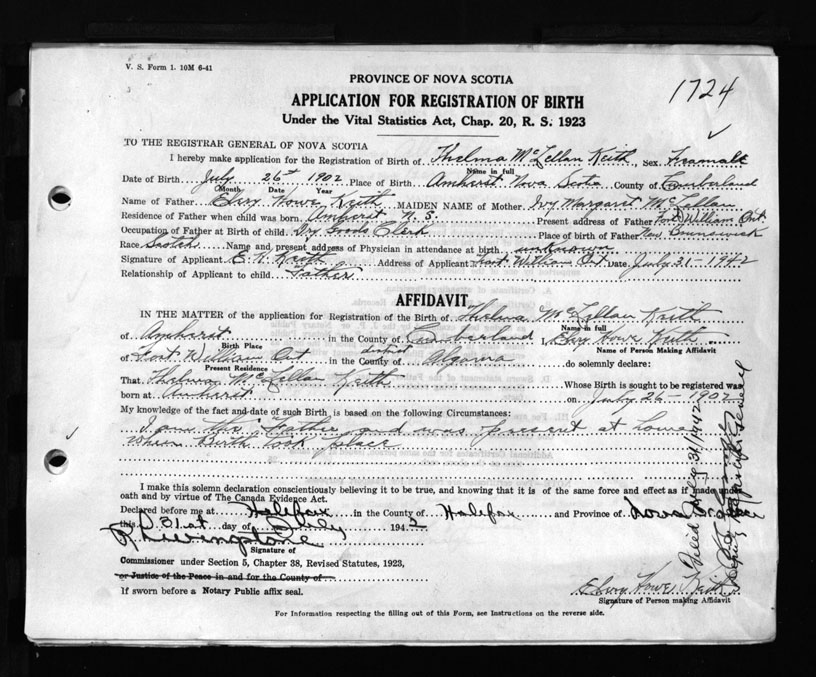 V. S. Form 1. 10M 6-41
1724
PROVINCE OF NOVA SCOTIA
APPLICATION FOR REGISTRATION OF BIRTH
Under the Vital Statistics Act, Chap. 20, R. S. 1923
TO THE REGISTRAR GENERAL OF NOVA SCOTIA
I hereby make application for the Registration of Birth of Thelma McLellan Keith, Sex Feamale
Name in full
Date of Birth July 26th 1902 Place of Birth Amherst Nova Scotia County of Cumberland
Month Date Year
Name of Father Howe Keith MAIDEN NAME of Mother Ivy Margaret McLellan
Residence of Father when child was born Amherst N. S. Present address of Father Fort William Ont
Occupation of Father at Birth of child Dry Goods Clerk Place of birth of Father New Brunswick
Race Scotch Name and present address of Physician in attendance at birth unknown
Signature of Applicant E. H. Keith Address of Applicant Fort William Ont Date July 31 - 1942
Relationship of Applicant to child Father
AFFIDAVIT
IN THE MATTER of the application for Registration of the Birth of Thelma McLellan Keith
Name in full
of Amherst in the County of Cumberland I, Howe Keith
Birth Place Name of Person Making Affidavit
of Fort William Ont in the County of district Algoma do solemnly declare:
Present Residence
That Thelma McLellan Keith Whose Birth is sought to be registered was
born at Amherst on July 26 - 1902
My knowledge of the fact and date of such Birth, is based on the following Circumstances:
I am the Father and was present at
when Birth took place
I make this solemn declaration conscientiously believing it to be true, and knowing that it is of the same force and effect as if made under
oath and by virtue of The Canada Evidence Act.
Declared before me at Halifax in the County of Halifax and Province of Nova Scotia
this 31st day of July 1942
R Livingstone
Signature of
Commissioner under Section 5, Chapter 38, Revised Statutes, 1923,
or Justice of the Peace in and for the County of
If sworn before a Notary Public affix seal.
Howe Keith
Signature of Person making Affidavit
For Information respecting the filling out of this Form, see Instructions on the reverse side.
Filed July 31/1942
Deputy Registrar General